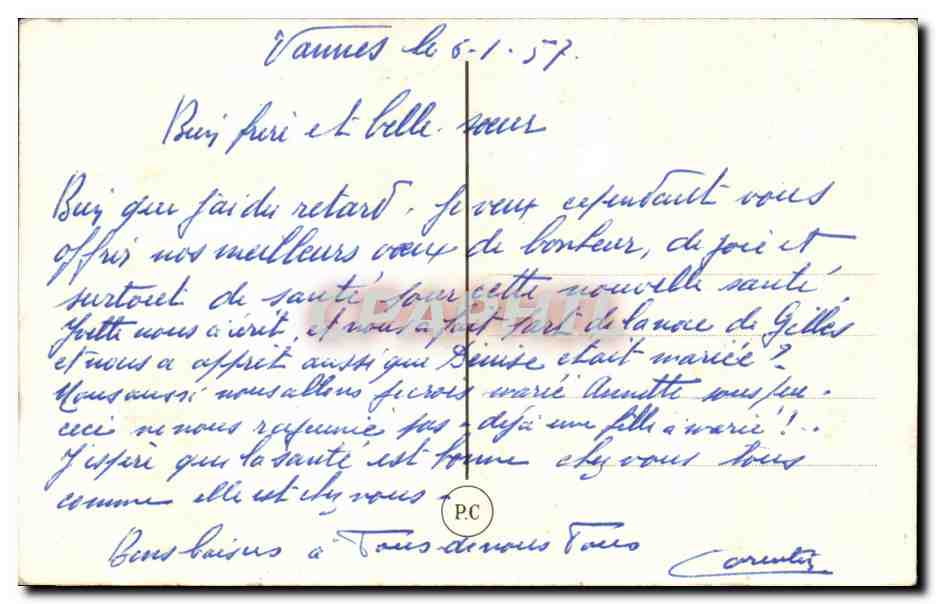 Vannes le 6-1-57.
Bien frère et belle-sœur
Bien que j'ai du retard. Je veux cependant vous
offrir nos meilleurs vœux de bonheur, de joie et
surtout de santé pour cette nouvelle santé,
Yvette nous a écrit, et nous a fait part de la noce de Gilles
et nous a apprit aussi que Denise etait mariée?
Nous aussi nous allons je crois marié Annette sous peu.
ceci ne nous rajeunie pas - déjà une fille a marié!..
J'espère que la santé est bonne chez vous tous
comme elle est chez nous -
P.C
Bons baisers à Tous de nous Tous
Corentin